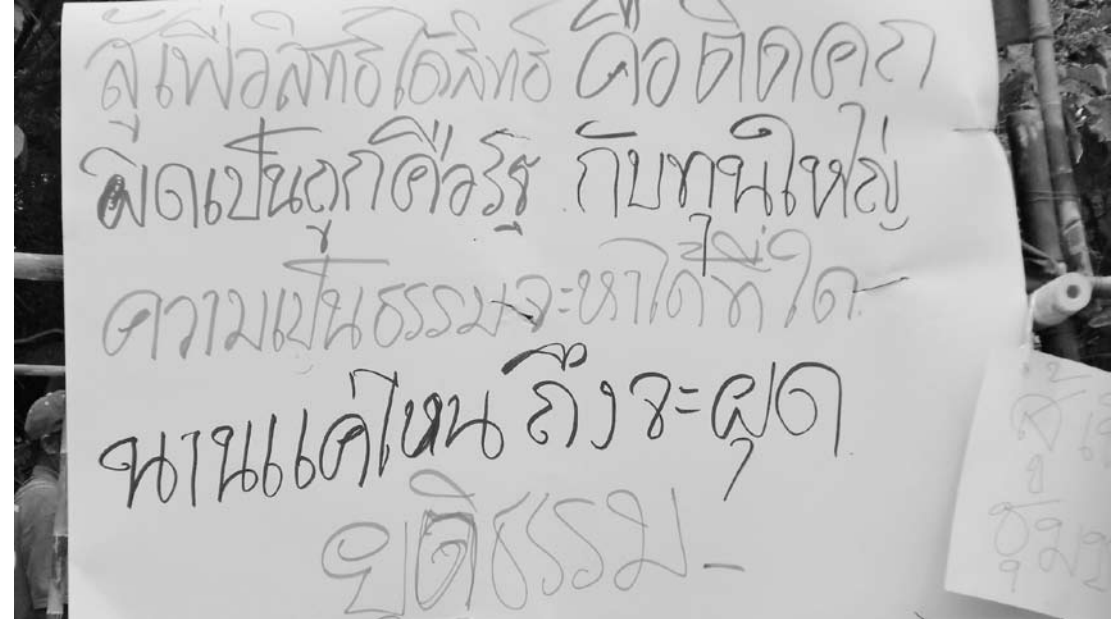 สู้เพื่อสิทธิ์ได้สิทธิ์ คือติดคุก
ผิดเป็นถูกคือรัฐ กับทุนใหญ่
ความเป็นธรรมจะหาได้ที่ใด
นานแค่ไหน ถึงจะผุด
ยุติธรรม